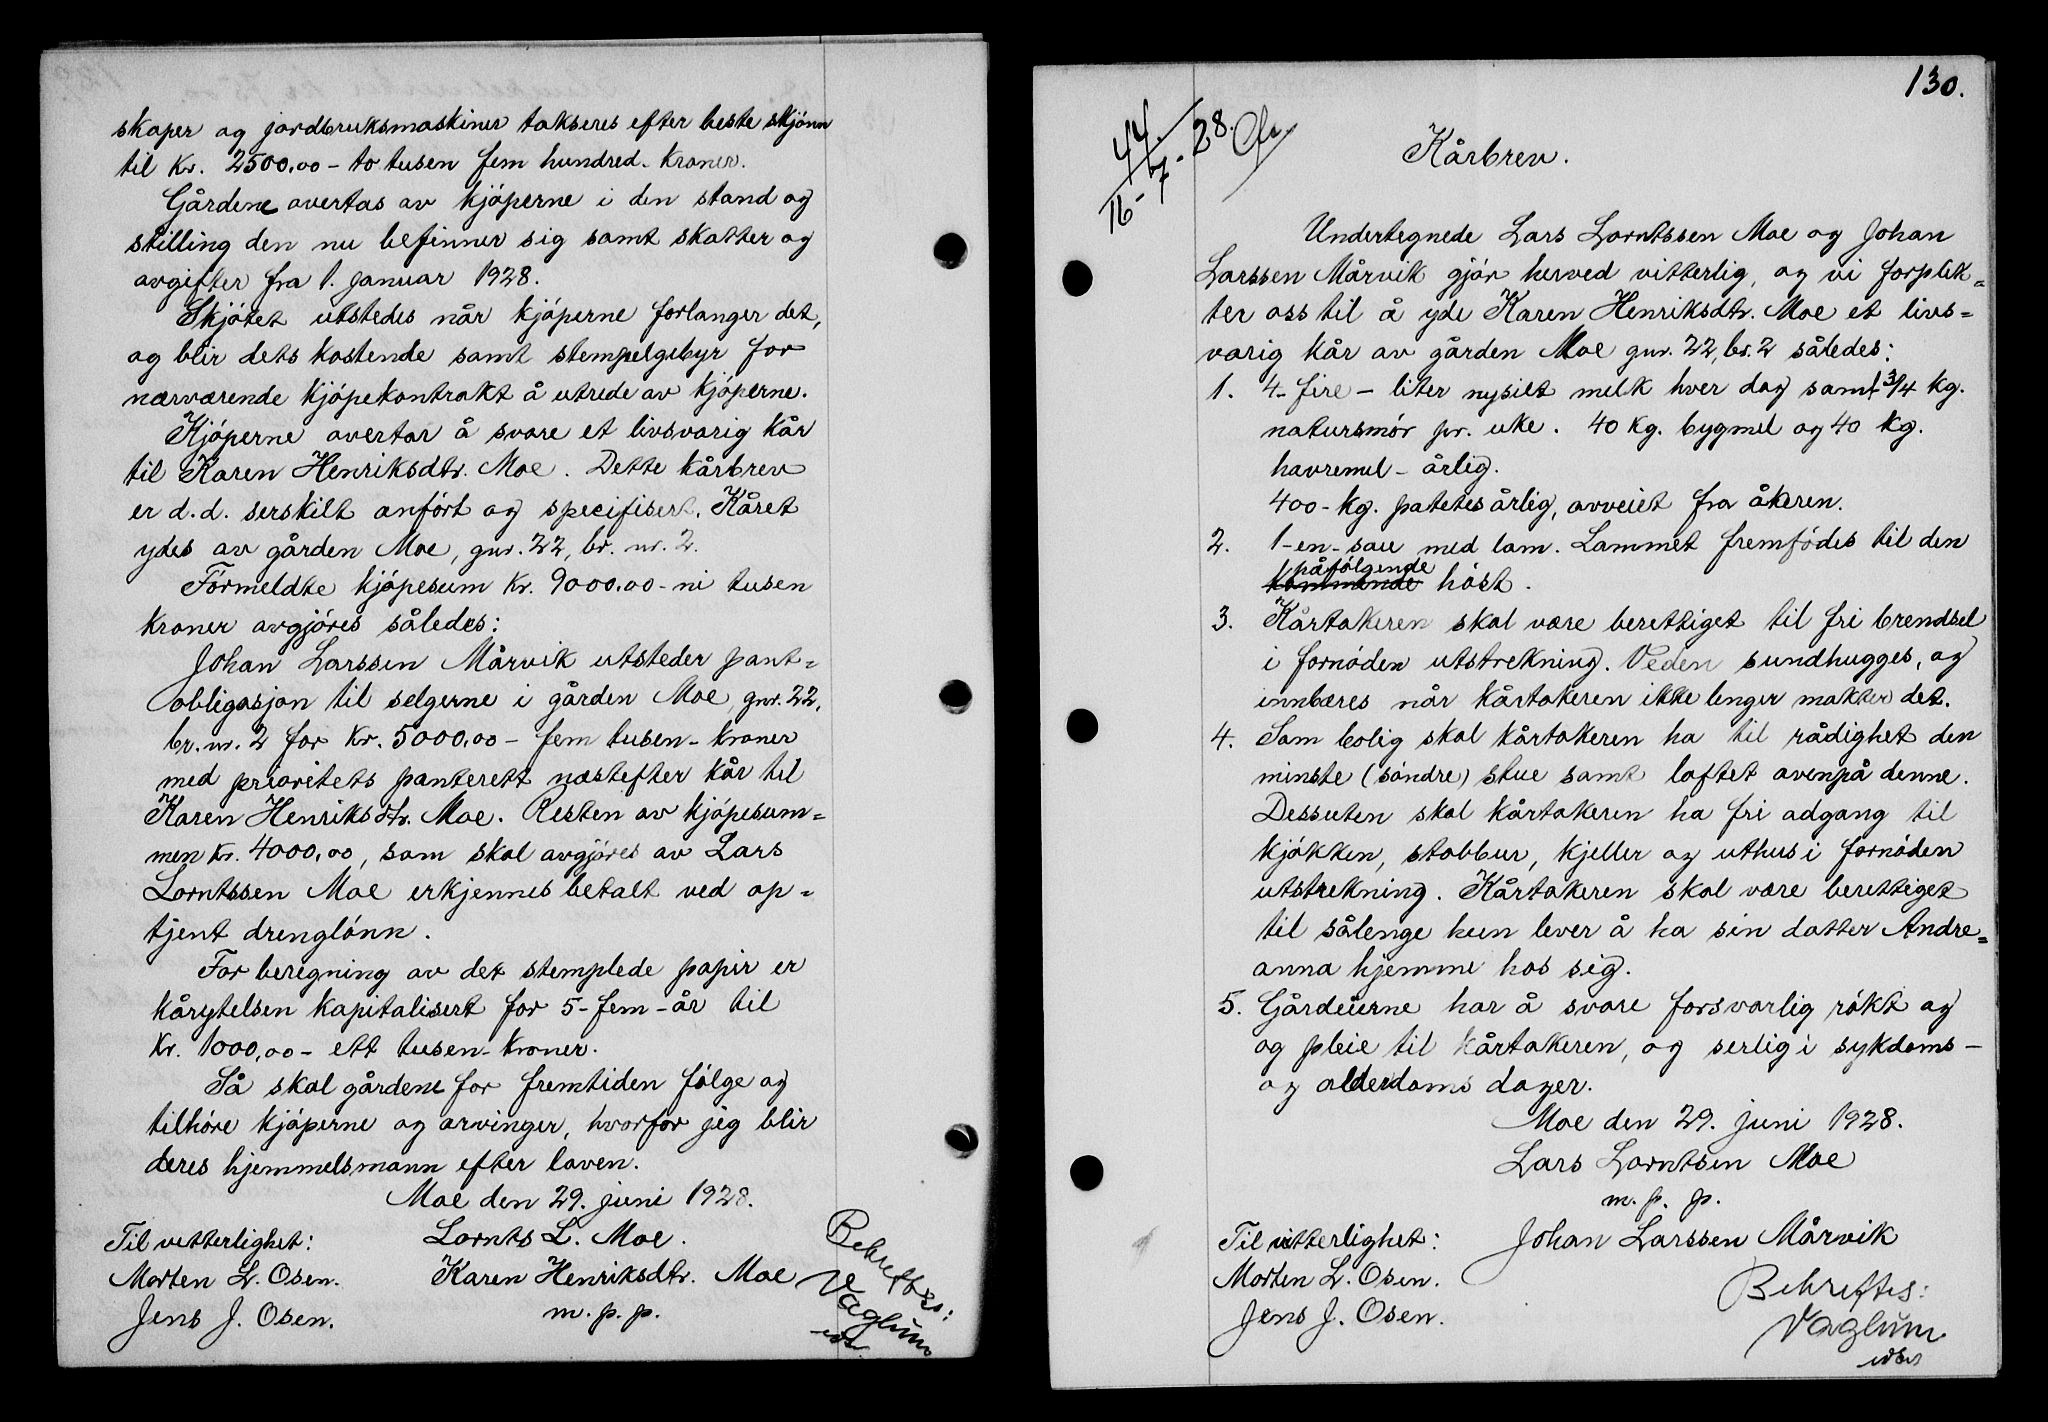 skaper og jordbruksmaskiner takseres efter beste skjønn
til Kr. 2500,00 - to tusen fem hundred - kroner.
Gårdene overtas av kjøperne i den stand og
stilling den nu befinner sig samt skatter og
avgifter fra 1. januar 1928.
Skjøtet utstedes når kjøperne forlanger det,
og blir dets kostende samt stempelgebyr for
nærværende kjøpekontrakt å utrede av kjøperne.
Kjøperne overtar å svare et livsvarig kår
til Karen Henriksdtr. Moe. Dette kårbrev
er d.d. serskilt anført og specifisert. Kåret
ydes av gården Moe, gnr. 22, br. nr. 2.
Førmeldte kjøpesum kr. 9000,00 - ni tusen
kroner avgjøres således:
Johan Larssen Mårvik utsteder pant=
obligasjon til selgerne i gården Moe, gnr. 22,
br. nr. 2 for Kr. 5000,00 - fem tusen - kroner
med prioritets panterett næstefter kår til
Karen Henriksdtr. Moe. Resten av kjøpesum=
men kr. 4000,00, som skal avgjøres av Lars
Lorntssen Moe erkjennes betalt ved op=
tjent drenglønn.
For beregning av det stemplede papir er
kårytelsen kapitalisert for 5 - fem - år til
Kr. 1000,00 - ett tusen - kroner.
Så skal gårdene for fremtiden følge og
tilhøre kjøperne og arvinger, hvorfor jeg blir
deres hjemmelsmann efter loven.
Moe den 29. juni 1928.
Til vitterlighet: Lornts L. Moe.
Morten L. Osen. Karen Henriksdtr. Moe
Jens J. Osen. m. p. p.
Behreftes:
Vaglum
130.
44/16-7-28.
Kårbrev.
Undertegnede Lars Lorntssen Moe og Johan
Larssen Mårvik gjør herved vitterlig, og vi forplik=
ter oss til å yde Karen Henriksdtr. Moe et livs=
varig kår av gården Moe gnr. 22, br. 2 således:
1. 4 - fire - liter nysilt melk hver dag samt 3/4 kg.
natursmør pr. uke. 40 kg. bygmel og 40 kg.
havremel - årlig.
400 - kg. potetes årlig, avveiet fra åkeren.
2. 1 - en - sau med lam. Lammet fremfødes til den
påfølgende
kommende høst.
3. Kårtakeren skal være berettiget til fri brendsel
i fornøden utstrekning. Veden sundhugges, og
innbæres når kårtakeren ikke lenger makter det.
4. Som bolig skal kårtakeren ha til rådighet den
minste (søndre) stue samt loftet ovenpå denne.
Dessuten skal kårtakeren ha fri adgang til
kjøkken, stabbur, kjeller og uthus i fornøden
utstrekning. Kårtakeren skal være berettiget
til sålenge hun lever å ha sin datter Andre=
anna hjemme hos sig.
5. Gårdeierne har å svare forsvarlig røkt og
og pleie til kårtakeren, og serlig i sykdoms-
og alderdoms dager.
Moe den 29. juni 1928.
Lars Lorntsen Moe
m. p. p.
Til vitterlighet: Johan Larssen Mårvik
Morten L. Osen.
Jens J. Osen.
Behreftes:
Vaglum